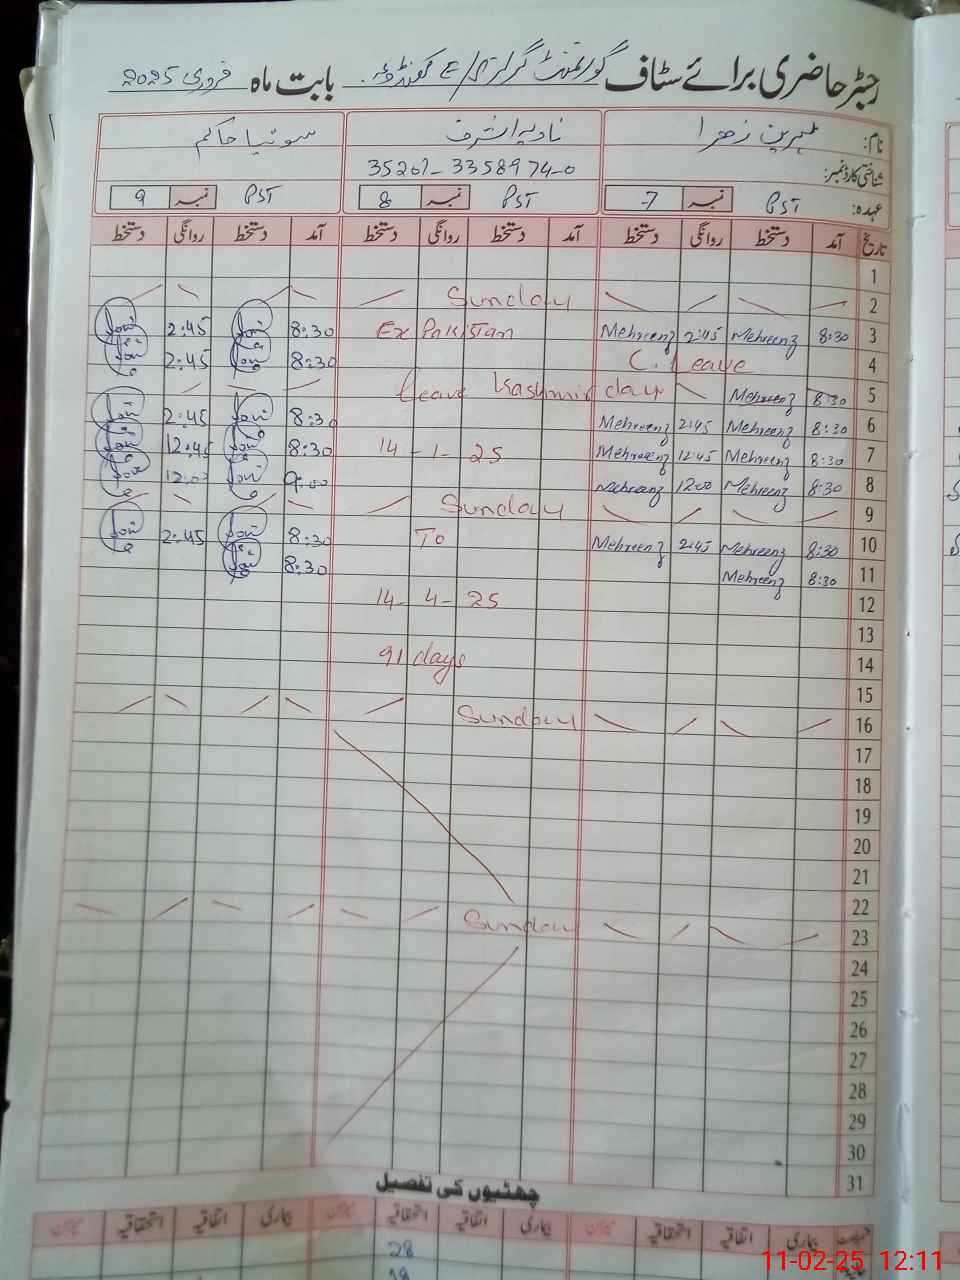 رجسٹر حاضری برائے سٹاف گورنمنٹ گرلز E/S بابت ماہ فروری 2025
نام: مہرین زھرا نادیہ اشرف سونیا حاکم
شناختی کارڈ نمبر: 35201-3358974-0
عہدہ: PST نمبر 7 PST نمبر 8 PST نمبر 9
تاریخ آمد دستخط روانگی دستخط آمد دستخط روانگی دستخط آمد دستخط روانگی دستخط
1
2 Sunday
3 8:30 Mehreenz 2:45 Mehreenz Ex Pakistan 8:30 2:45
4 C. Leave 8:30 2:45
5 8:30 Mehreenz Leave Kashmir day
6 8:30 Mehreenz 2:45 Mehreenz 8:30 2:45
7 8:30 Mehreenz 12:45 Mehreenz 14-1-25 8:30 12:45
8 8:30 Mehreenz 12:00 Mehreenz 9:00 12:00
9 Sunday
10 8:30 Mehreenz 2:45 Mehreenz To 8:30 2:45
11 8:30 Mehreenz 8:30
12 14-4-25
13
14 91 days
15
16 Sunday
17
18
19
20
21
22
23 Sunday
24
25
26
27
28
29
30
31
چھٹیوں کی تفصیل
بیماری اتفاقیہ استحقاقیہ بیماری اتفاقیہ استحقاقیہ بیماری اتفاقیہ استحقاقیہ
28
11-02-25 12:11